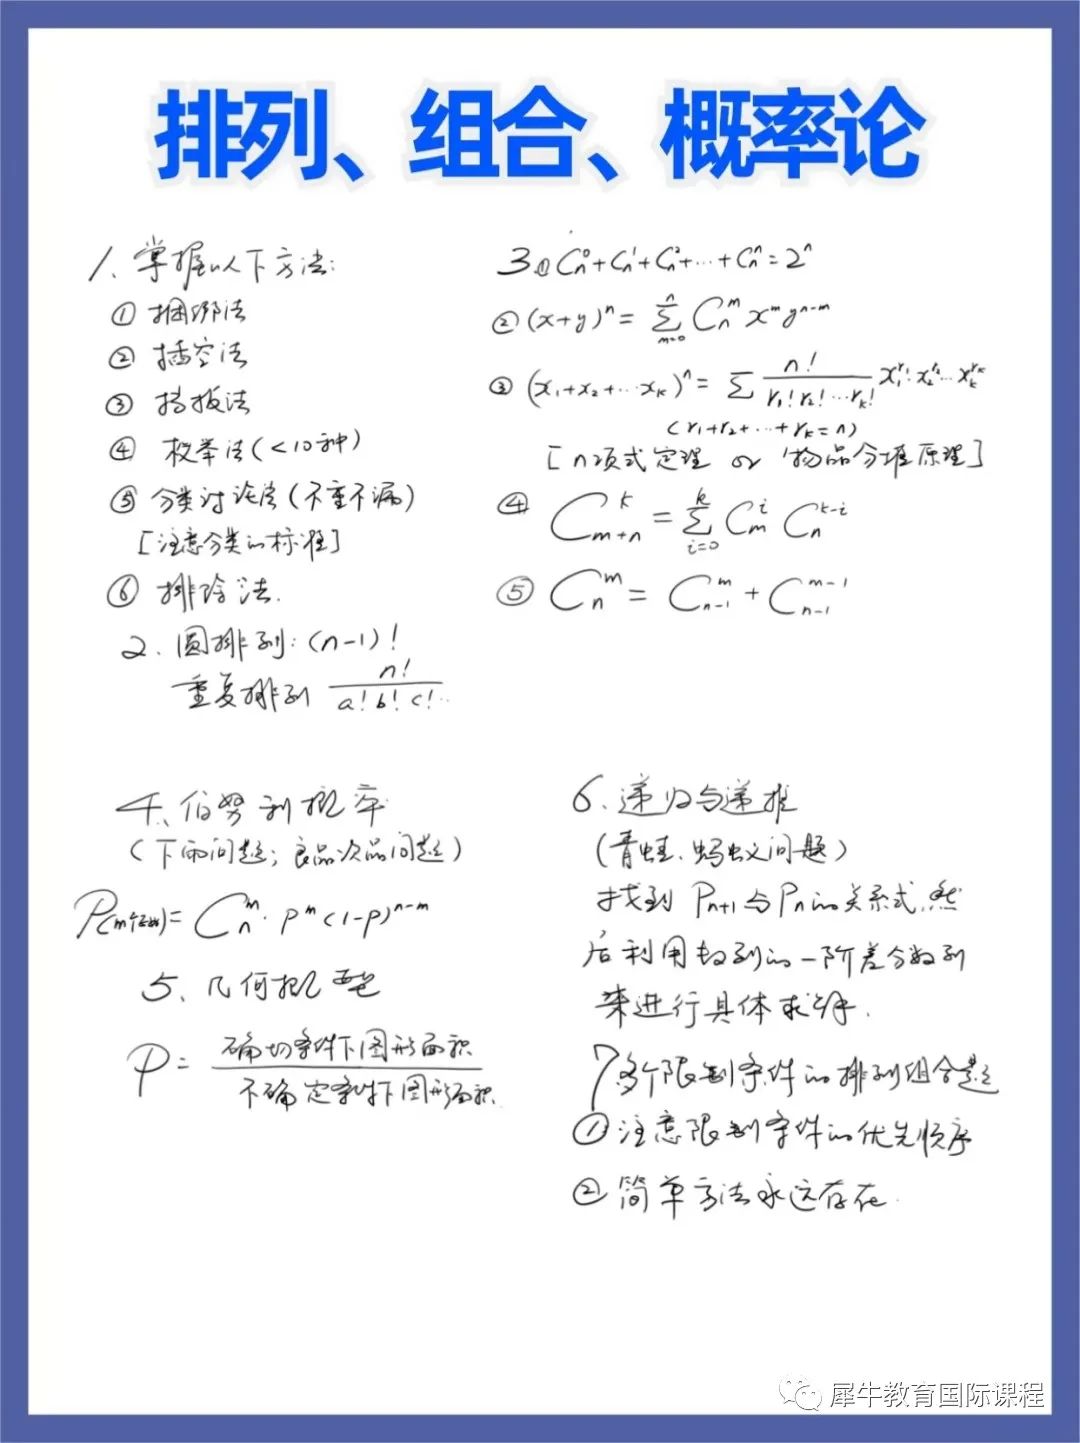 排列、组合、概率论
1、掌握以下方法:
① 捆绑法
② 插空法
③ 挡板法
④ 枚举法(<10种)
⑤ 分类讨论法(不重不漏)
[注意分类的标准]
⑥ 排除法.
2. 圆排列:(n-1)!
重复排列 n!/(a!b!c!…)
3.① Cₙ⁰+Cₙ¹+Cₙ²+…+Cₙⁿ=2ⁿ
② (x+y)ⁿ= ∑_{m=0}^{n} Cₙᵐ xᵐ yⁿ⁻ᵐ
③ (x₁+x₂+…xₖ)ⁿ= ∑ n!/(r₁!r₂!…rₖ!) x₁^{r₁}·x₂^{r₂}…xₖ^{rₖ}
(r₁+r₂+…+rₖ=n)
[n项式定理 or 物品分堆原理]
④ C_{m+n}^{k} = ∑_{i=0}^{k} C_{m}^{i} C_{n}^{k-i}
⑤ C_{n}^{m} = C_{n-1}^{m} + C_{n-1}^{m-1}
4、伯努利概率
(下雨问题; 良品次品问题)
P(m个)= Cₙᵐ·pᵐ(1-p)ⁿ⁻ᵐ
5、几何概型
P= 确切条件下图形面积/不确定条件下图形面积.
6、递归与递推
(青蛙、蚂蚁问题)
找到 Pₙ₊₁与Pₙ的关系式,然
后利用数列的一阶差分数列
来进行具体求解.
7多个限制条件的排列组合题
① 注意限制条件的优先顺序
② 简单方法永远存在.
犀牛教育国际课程